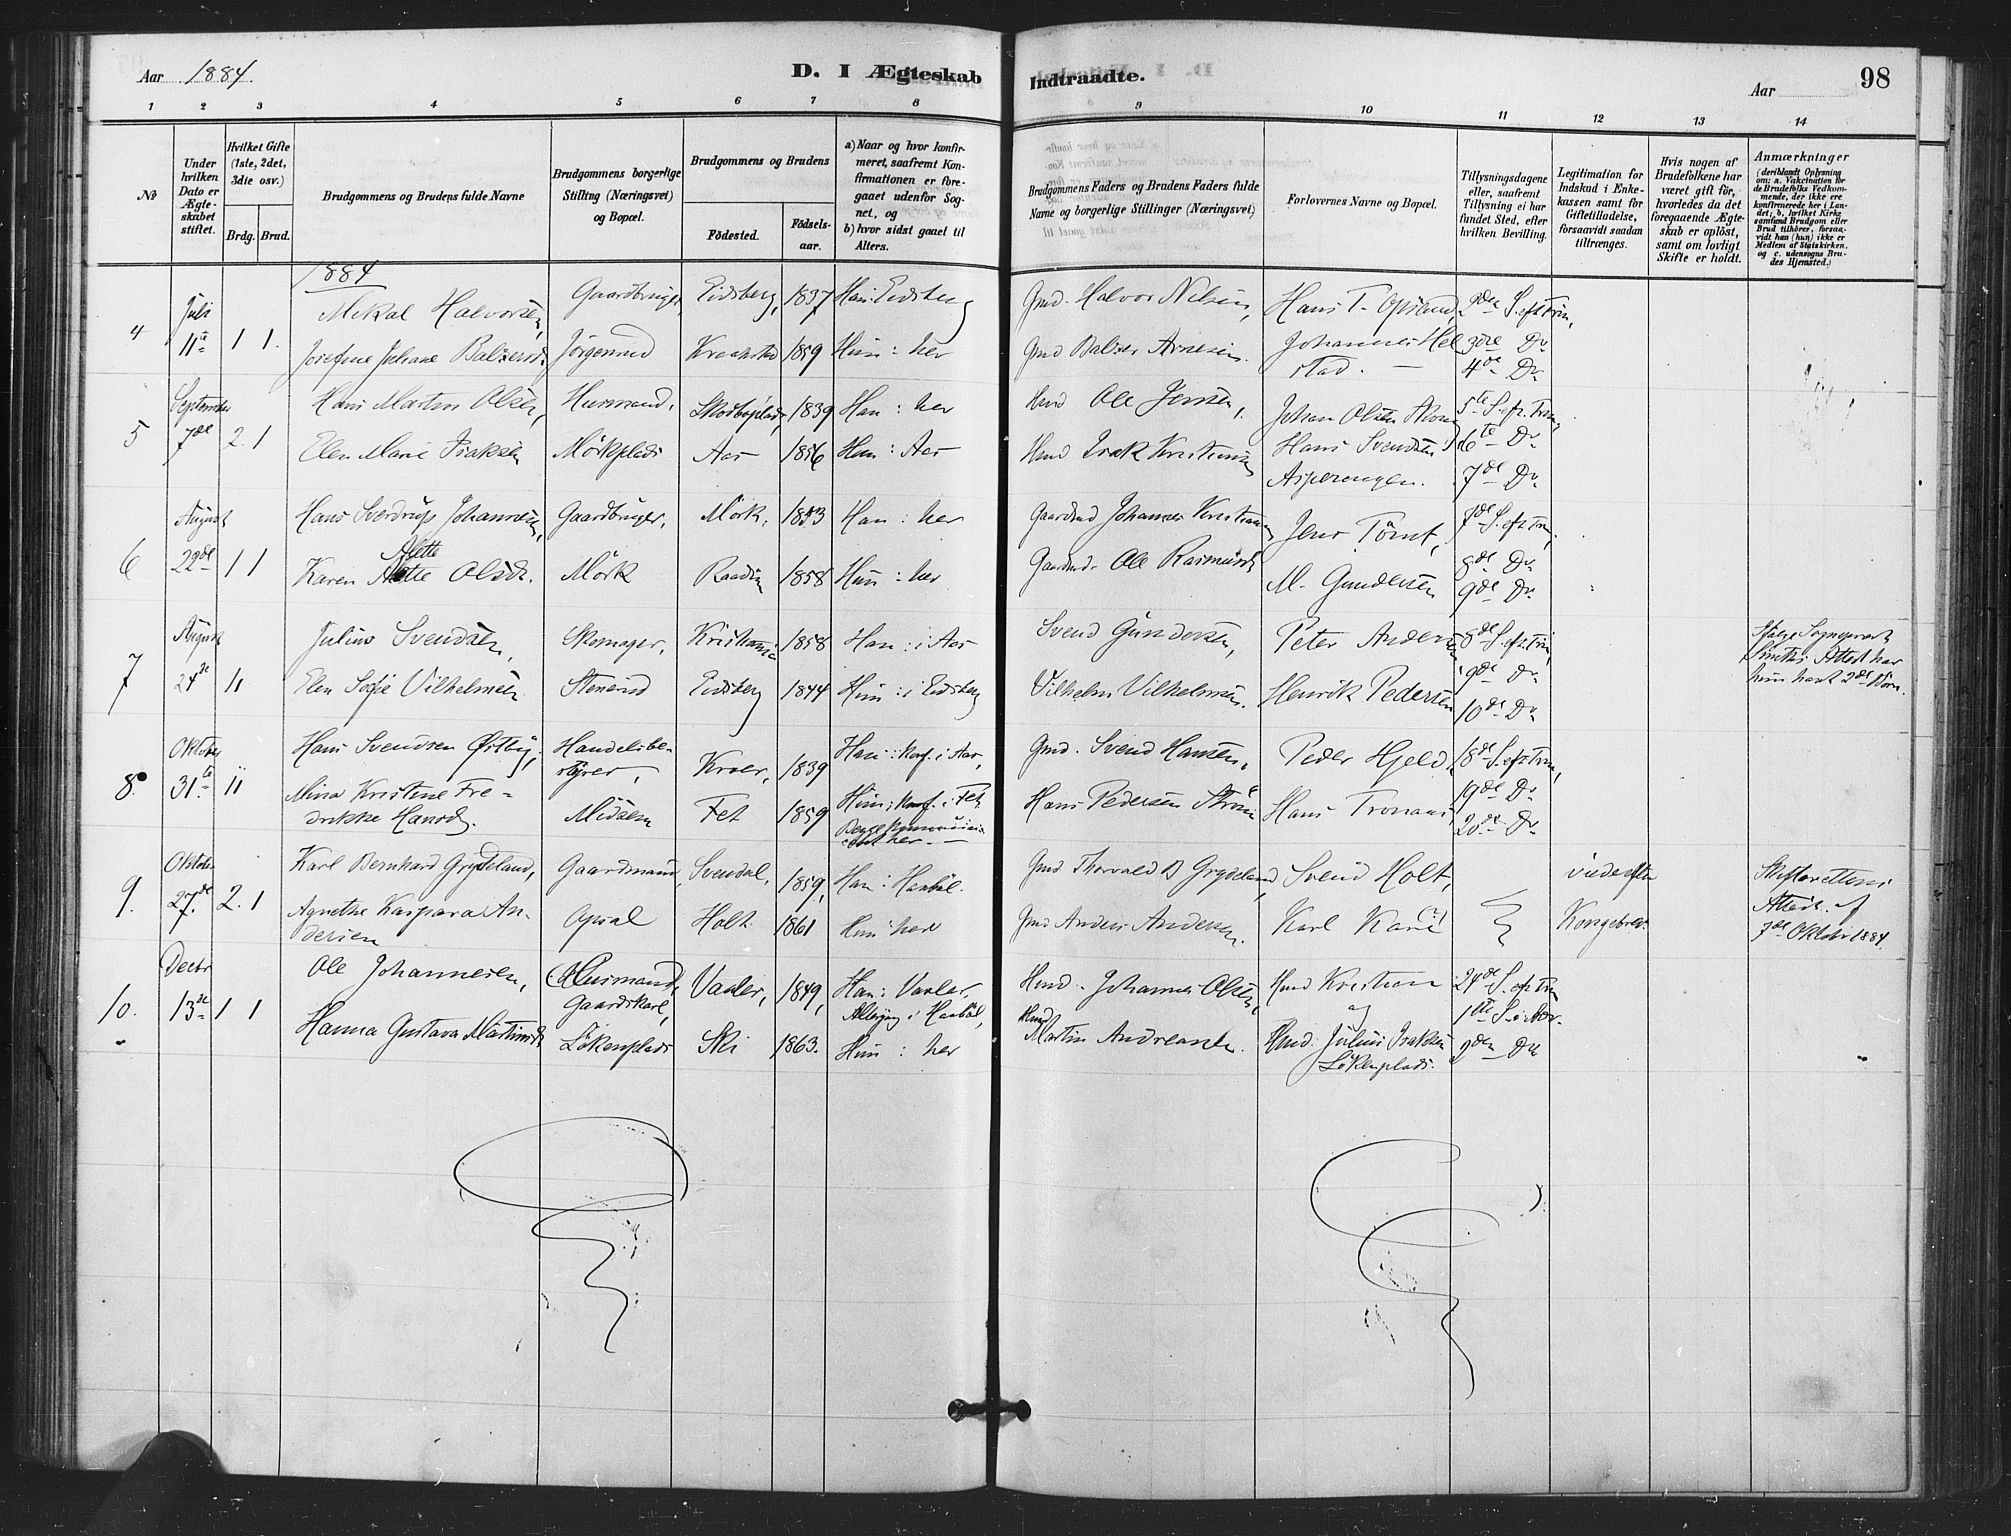 Aar 1884.
D. I Ægteskab
Indtraadte.
Aar
98
1 2 3 4 5 6 7 8
9 10 11 12 13 14
No
Under hvilken Dato er Ægteskabet stiftet.
Hvilket Gifte (1ste, 2det, 3die osv.)
Brdg. Brud.
Brudgommens og Brudens fulde Navne
Brudgommens borgerlige Stilling (Næringsvei) og Bopæl.
Brudgommens og Brudens
Födested.
Födsels-aar.
a) Naar og hvor konfirmeret, saafremt Konfirmationen er foregaaet udenfor Sognet, og
b) hvor sidst gaaet til Alters.
Brudgommens Faders og Brudens Faders fulde Navne og borgerlige Stillinger (Næringsvei)
Forlovernes Navne og Bopæl.
Tillysningsdagene eller, saafremt Tillysning ei har fundet Sted, efter hvilken Bevilling.
Legitimation for Indskud i Enkekassen samt for Giftetilladelse, forsaavidt saadan tiltrænges.
Hvis nogen af Brudefolkene har været gift för, hvorledes da det foregaaende Ægteskab er oplöst, samt om lovligt Skifte er holdt.
Anmærkninger
(deriblandt Oplysning om: a. Vakcination for de Brudefolks Vedkommende, der ikke ere konfirmerede her i Landet; b. hvilket Kirkesamfund Brudgom eller Brud tilhörer, forsaavidt han (hun) ikke er Medlem af Statskirken, og c. udensogns Brudes Hjemsted.)
1884
4 Juli 11te 1 1.
Mikal Halvorsen, Gaardbruger, Eidsberg, 1837 Han: Eidsberg Gmd. Halvor Nilsen, Hans T. Opsand, 2den S. eft Trin,
Josefine Johane Balzersd. Jörgenrud Kraakstad 1859 Hun: her Gmd Balzer Arnesen. Johannes Hel 3die Do
stad. — 4de Do
5 September 7de 2. 1
Hans Martin Olsen, Husmand, 1839 Han: her Hmd Ole Jensen, Johan Olsen 5te S. ef. Trin,
Elen Marie Isaksen Mörkplads Aas 1856 Hun: Aas Hmd Isak Kristiansen Hans Svendsen 6te Do
Asperengen. 7de Do
6 August 22de 1 1
Hans Sverdrup Johannesen, Gaardbruger, Mörk, 1853 Han: her Gaardmd Johannes Kristiansen Jens Tomt, 7de S. eft Trin,
Alette
Karen Olsdr. Mörk Raadin 1858 Hun: her Gaardmd. Ole Rasmusen M. Gundersen 8de Do
9de Do
7 August 24de 1 1
Julius Svendsen, Skomager, Kristiania 1858 Han: i Aas Svend Gundersen, Peter Andersen 8de S. eft Trin,
Elen Sofie Vilhelmsen Stenrud Eidsberg 1844 Hun: i Eidsberg Vilhelm Vilhelmsen. Henrik Pedersen 9de Do
10de Do
Sognepræst
Smiths Attest har
hun havt 2de Börn.
8. Oktober 31te 1 1
Hans Svendsen Østby, Handelsbe- Kroer, 1839 Han: konf. i Aas, Gmd. Svend Hansen, Peder Hjeld. 18de S. eft Trin,
styrer,
Mina Kristene Fre- Midsem Fet 1859 Hun: konf. i Fet Hans Pedersen Ström Hans Tronaas, 19de Do
drikke Hansd. 20de Do
Begge her. —
9. Oktober 27de. 2. 1
Karl Bernhard Grydeland, Gaardmand, Svendal, 1859, Han: Haabøl. Gmd Thorvald B Grydeland, Svend Holt, viede efter
Agnethe Kaspara An- Opsal Holt 1861 Hun her Gmd Anders Andersen. Karl Kari (?) Kongebrev.
dersen
Skifterettens
Attest. af
7de Oktober 1884
10. Decbr 13de 1 1
Ole Johannesen, Husmand, Vaaler, 1849, Han: Vaaler, Hmd. Johannes Olsen, Hmd Kristian 24de S. eft Trin
Gaardskarl, i Haabøl, og 1ste S. i Adv.
Hanna Gustava Martinsd. Lökenplads Ski 1863. Hun: her Hmd Martin Andreasen. Hmd. Julius Isaksen 2den Do
Lökenplads.